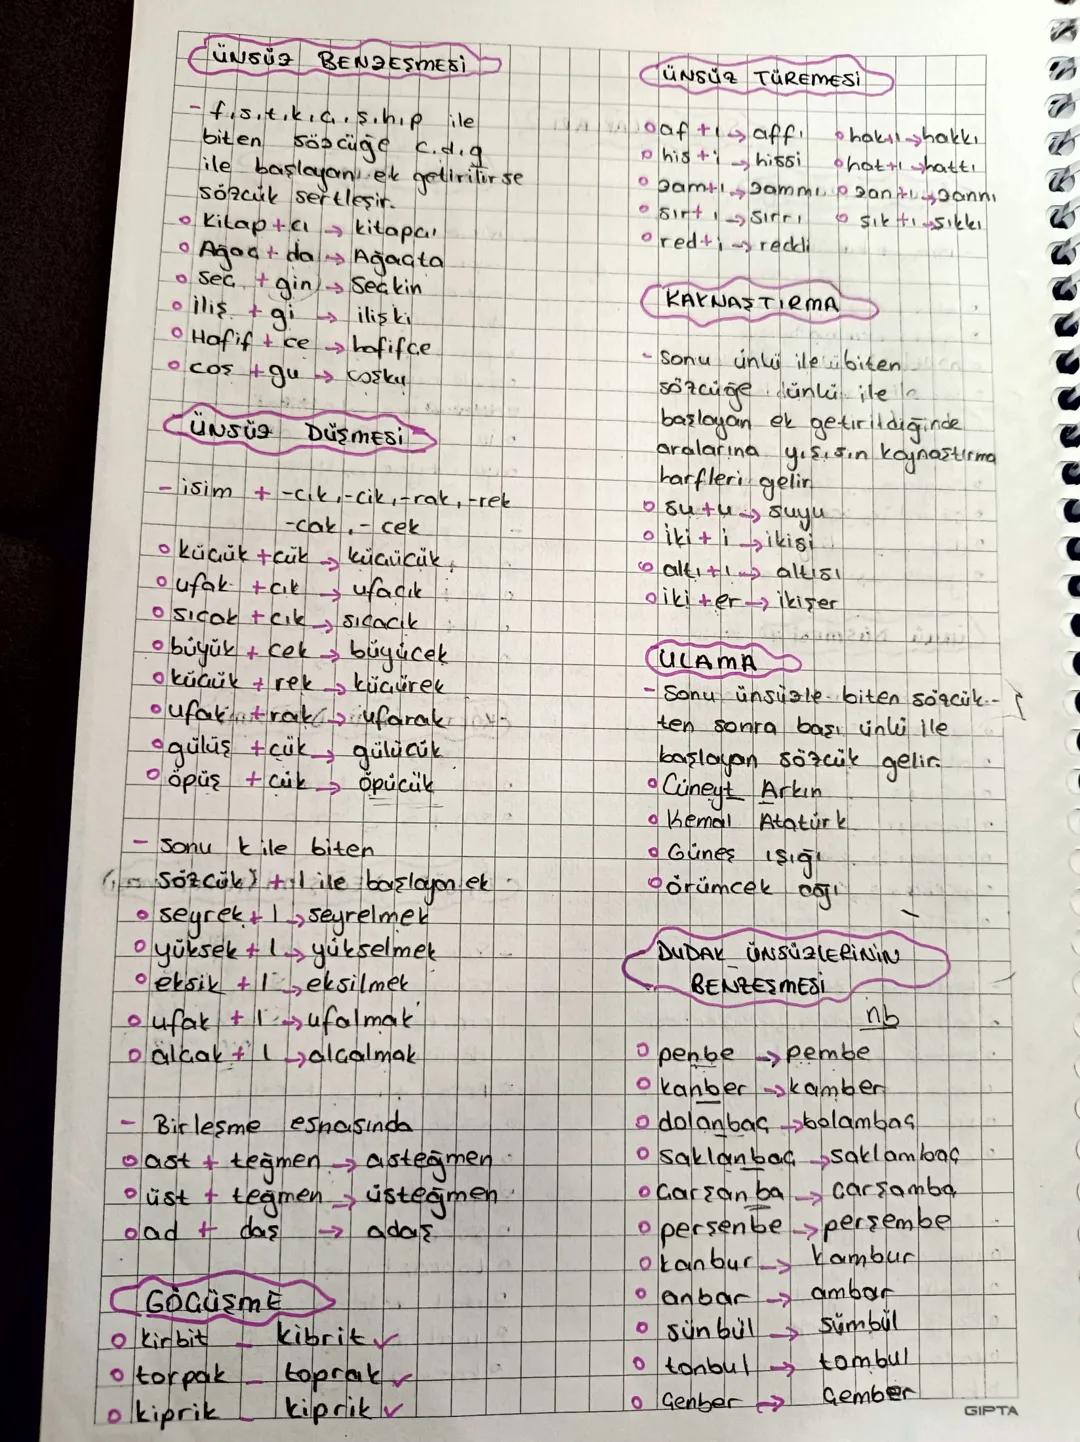 ÜNSÜZ BENZEŞMESİ
- f,s,t,k,ç,ş,h,p ile
biten sözcüğe c,d,g
ile başlayan ek getirilirse
sözcük sertleşir.
Kitap + cı → kitapçı
Ağaç + da → Ağaçta
Seç + gin → Seçkin
iliş + gi → ilişki
Hafif + ce → hafifçe
coş + gu → coşku
ÜNSÜZ DÜŞMESİ
- isim + -cık, -cik, -rak, -rek
-cak, - cek
küçük + cük → küçücük
ufak + cık → ufacık
sıcak + cık → sıcacık
büyük + cek → büyücek
küçük + rek → küçürek
ufak + rak → ufarak
gülüş + cük → gülücük
öpüş + cük → öpücük
- Sonu k ile biten
sözcük + l ile başlayan ek
seyrek + l → seyrelmek
yüksek + l → yükselmek
eksik + l → eksilmek
ufak + l → ufalmak
alçak + l → alçalmak
- Birleşme esnasında
ast + teğmen → asteğmen
üst + teğmen → üsteğmen
ad + daş → adaş
GÖÇÜŞME
kirbit - kibrit ✓
torpak - toprak ✓
kiprik - kiprik ✓
ÜNSÜZ TÜREMESİ
af + ı → affı hak+ı → hakkı
his + i → hissi hat+ı → hattı
zam+ı → zammı zan+ı → zannı
sır+ı → sırrı şık+ı → şıkkı
red+i → reddi
KAYNAŞTIRMA
- Sonu ünlü ile biten
sözcüğe ünlü ile
başlayan ek getirildiğinde
aralarına y,ş,s,n kaynaştırma
harfleri gelir
su + u → suyu
iki + i → ikisi
altı + ı → altısı
iki + er → ikişer
ULAMA
- Sonu ünsüzle biten sözcük-
ten sonra başı ünlü ile
başlayan sözcük gelir.
Cüneyt Arkın
Kemal Atatürk
Güneş ışığı
örümcek ağı
DUDAK ÜNSÜZLERİNİN
BENZEŞMESİ
nb
penbe → pembe
kanber → kamber
dolanbaç → bolambaç
saklanbaç → saklambaç
Çarşanba → çarşamba
perşenbe → perşembe
kanbur → kambur
anbar → ambar
sünbül → sümbül
tonbul → tombul
Çenber → Çember
GIPTA